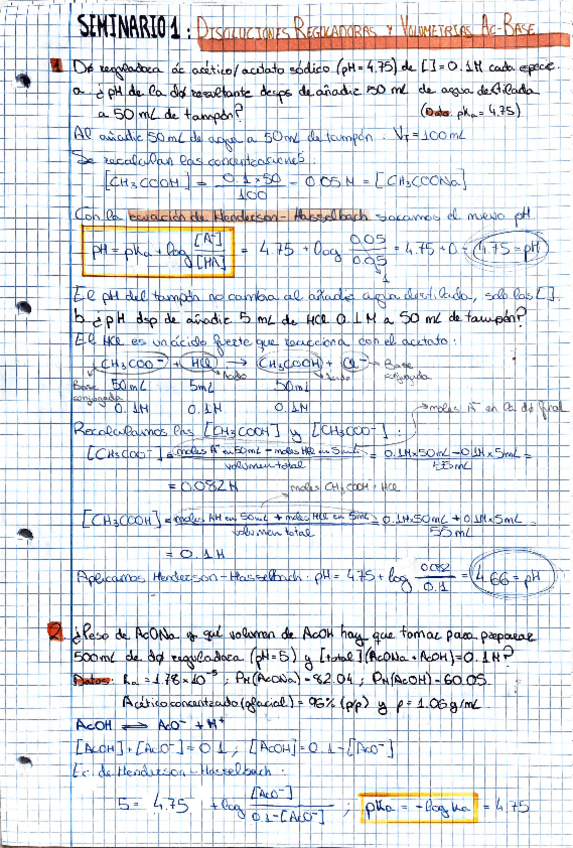 SEMINARIO 1: DISOLUCIONES REGULADORAS Y VOLUMETRIAS AC-BASE
1 Dº reguladora ác acético/acetato sódico (pH=4.75) de [ ]=0.1M cada especie.
a. ¿pH de la dº resultante desps de añadir 50 mL de agua destilada
a 50 mL de tampón? (Dato: pKa = 4.75)
Al añadir 50 mL de agua a 50 mL de tampón: VT = 100 mL
Se recalculan las concentraciones:
[CH3COOH] = 0.1 x 50 / 100 = 0.05 M = [CH3COONa]
Con la ecuación de Henderson-Hasselbach sacamos el nuevo pH
pH = pKa + log [A-]/[HA] = 4.75 + log 0.05/0.05 = 4.75 + 0 = 4.75 = pH
1
El pH del tampón no cambia al añadir agua destilada, solo las [ ].
b. ¿pH dsp de añadir 5 mL de HCl 0.1 M a 50 mL de tampón?
El HCl es un ácido fuerte que reacciona con el acetato:
CH3COO- + HCl → CH3COOH + Cl- → Base conjugada
Base conjugada 50mL 5mL Ácido 50mL Ácido
0.1M 0.1M 0.1M → moles A- en la dº final
Recalculamos las [CH3COOH] y [CH3COO-]:
[CH3COO-] = moles A- en 50mL - moles HCl en 5mL / volumen total = 0.1M x 50mL - 0.1M x 5mL / 55mL =
= 0.082 M → moles CH3COOH + HCl
[CH3COOH] = moles AH en 50mL + moles HCl en 5mL / volumen total = 0.1M x 50mL + 0.1M x 5mL / 55mL =
= 0.1 M
Aplicamos Henderson-Hasselbach: pH = 4.75 + log 0.082/0.1 = 4.66 = pH
2 ¿Peso de AcONa y qué volumen de AcOH hay que tomar para preparar
500mL de dº reguladora (pH=5) y [total](AcONa + AcOH)=0.1M?
Datos: Ka = 1.78 x 10-5; PM(AcONa) = 82.04; PM(AcOH) = 60.05
Acético concentrado (glacial) = 96% (p/p) y ρ = 1.06 g/mL
AcOH ⇌ AcO- + H+
[AcOH] + [AcO-] = 0.1; [AcOH] = 0.1 - [AcO-]
Ec. de Henderson-Hasselbach:
5 = 4.75 + log [AcO-] / 0.1-[AcO-]; pKa = -log Ka = 4.75